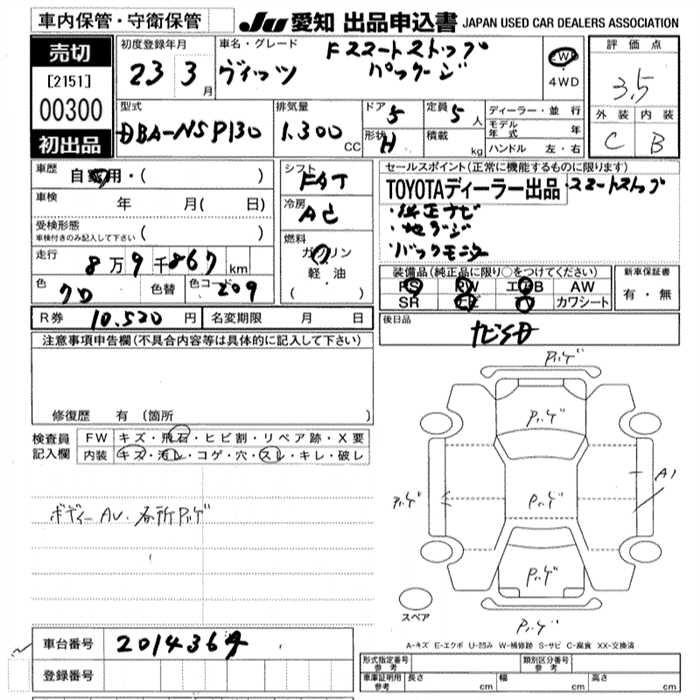 車内保管・守衛保管
JU 愛知 出品申込書 JAPAN USED CAR DEALERS ASSOCIATION
売切
[2151]
00300
初出品
初度登録年月
23 3月
車名・グレード
Fスマートストップ
ヴィッツ パッケージ
2WD
4WD
評価点
3.5
外装 内装
C B
型式
DBA-NSP130
排気量
1.300 CC
ドア 5
形状 H
定員 5 人
積載 kg
ディーラー・並行
モデル年式 年
ハンドル 左・右
車歴 自家用・( )
車検 年 月( 日)
受検形態
車検付きのみ記入して下さい ( )
走行 8万9千867km
色 クロ 色替 色コード 209
シフト
FAT
冷房
AC
燃料
ガソリン
軽油
( ・ )
セールスポイント(正常に機能するものに限ります)
TOYOTAディーラー出品 ・スマートストップ
・純正ナビ
・地デジ
・バックモニター
装備品(純正品に限り○をつけてください)
PS PW エアB AW
SR ナビ TV カワシート
新車保証書
有・無
R券 10.520 円 名変期限 月 日
後日品
ナビSD
注意事項申告欄(不具合内容等は具体的に記入して下さい)
修復歴 有 (箇所
検査員記入欄
FW キズ・飛石・ヒビ割・リペア跡・X要
内装 キズ・汚レ・コゲ・穴・スレ・キレ・破レ
ボディーAU・各所Pバゲ
Pハゲ
Pハゲ
Pハゲ
Pハゲ
A1
Pハゲ
Pハゲ
スペア
A-キズ E-エクボ U-凹み W-補修跡 S-サビ C-腐食 XX-交換済
車台番号 2014364
登録番号
形式指定番号 参考
類別区分番号 参考
車庫証明用 参考 長さ cm 幅 cm 高さ cm